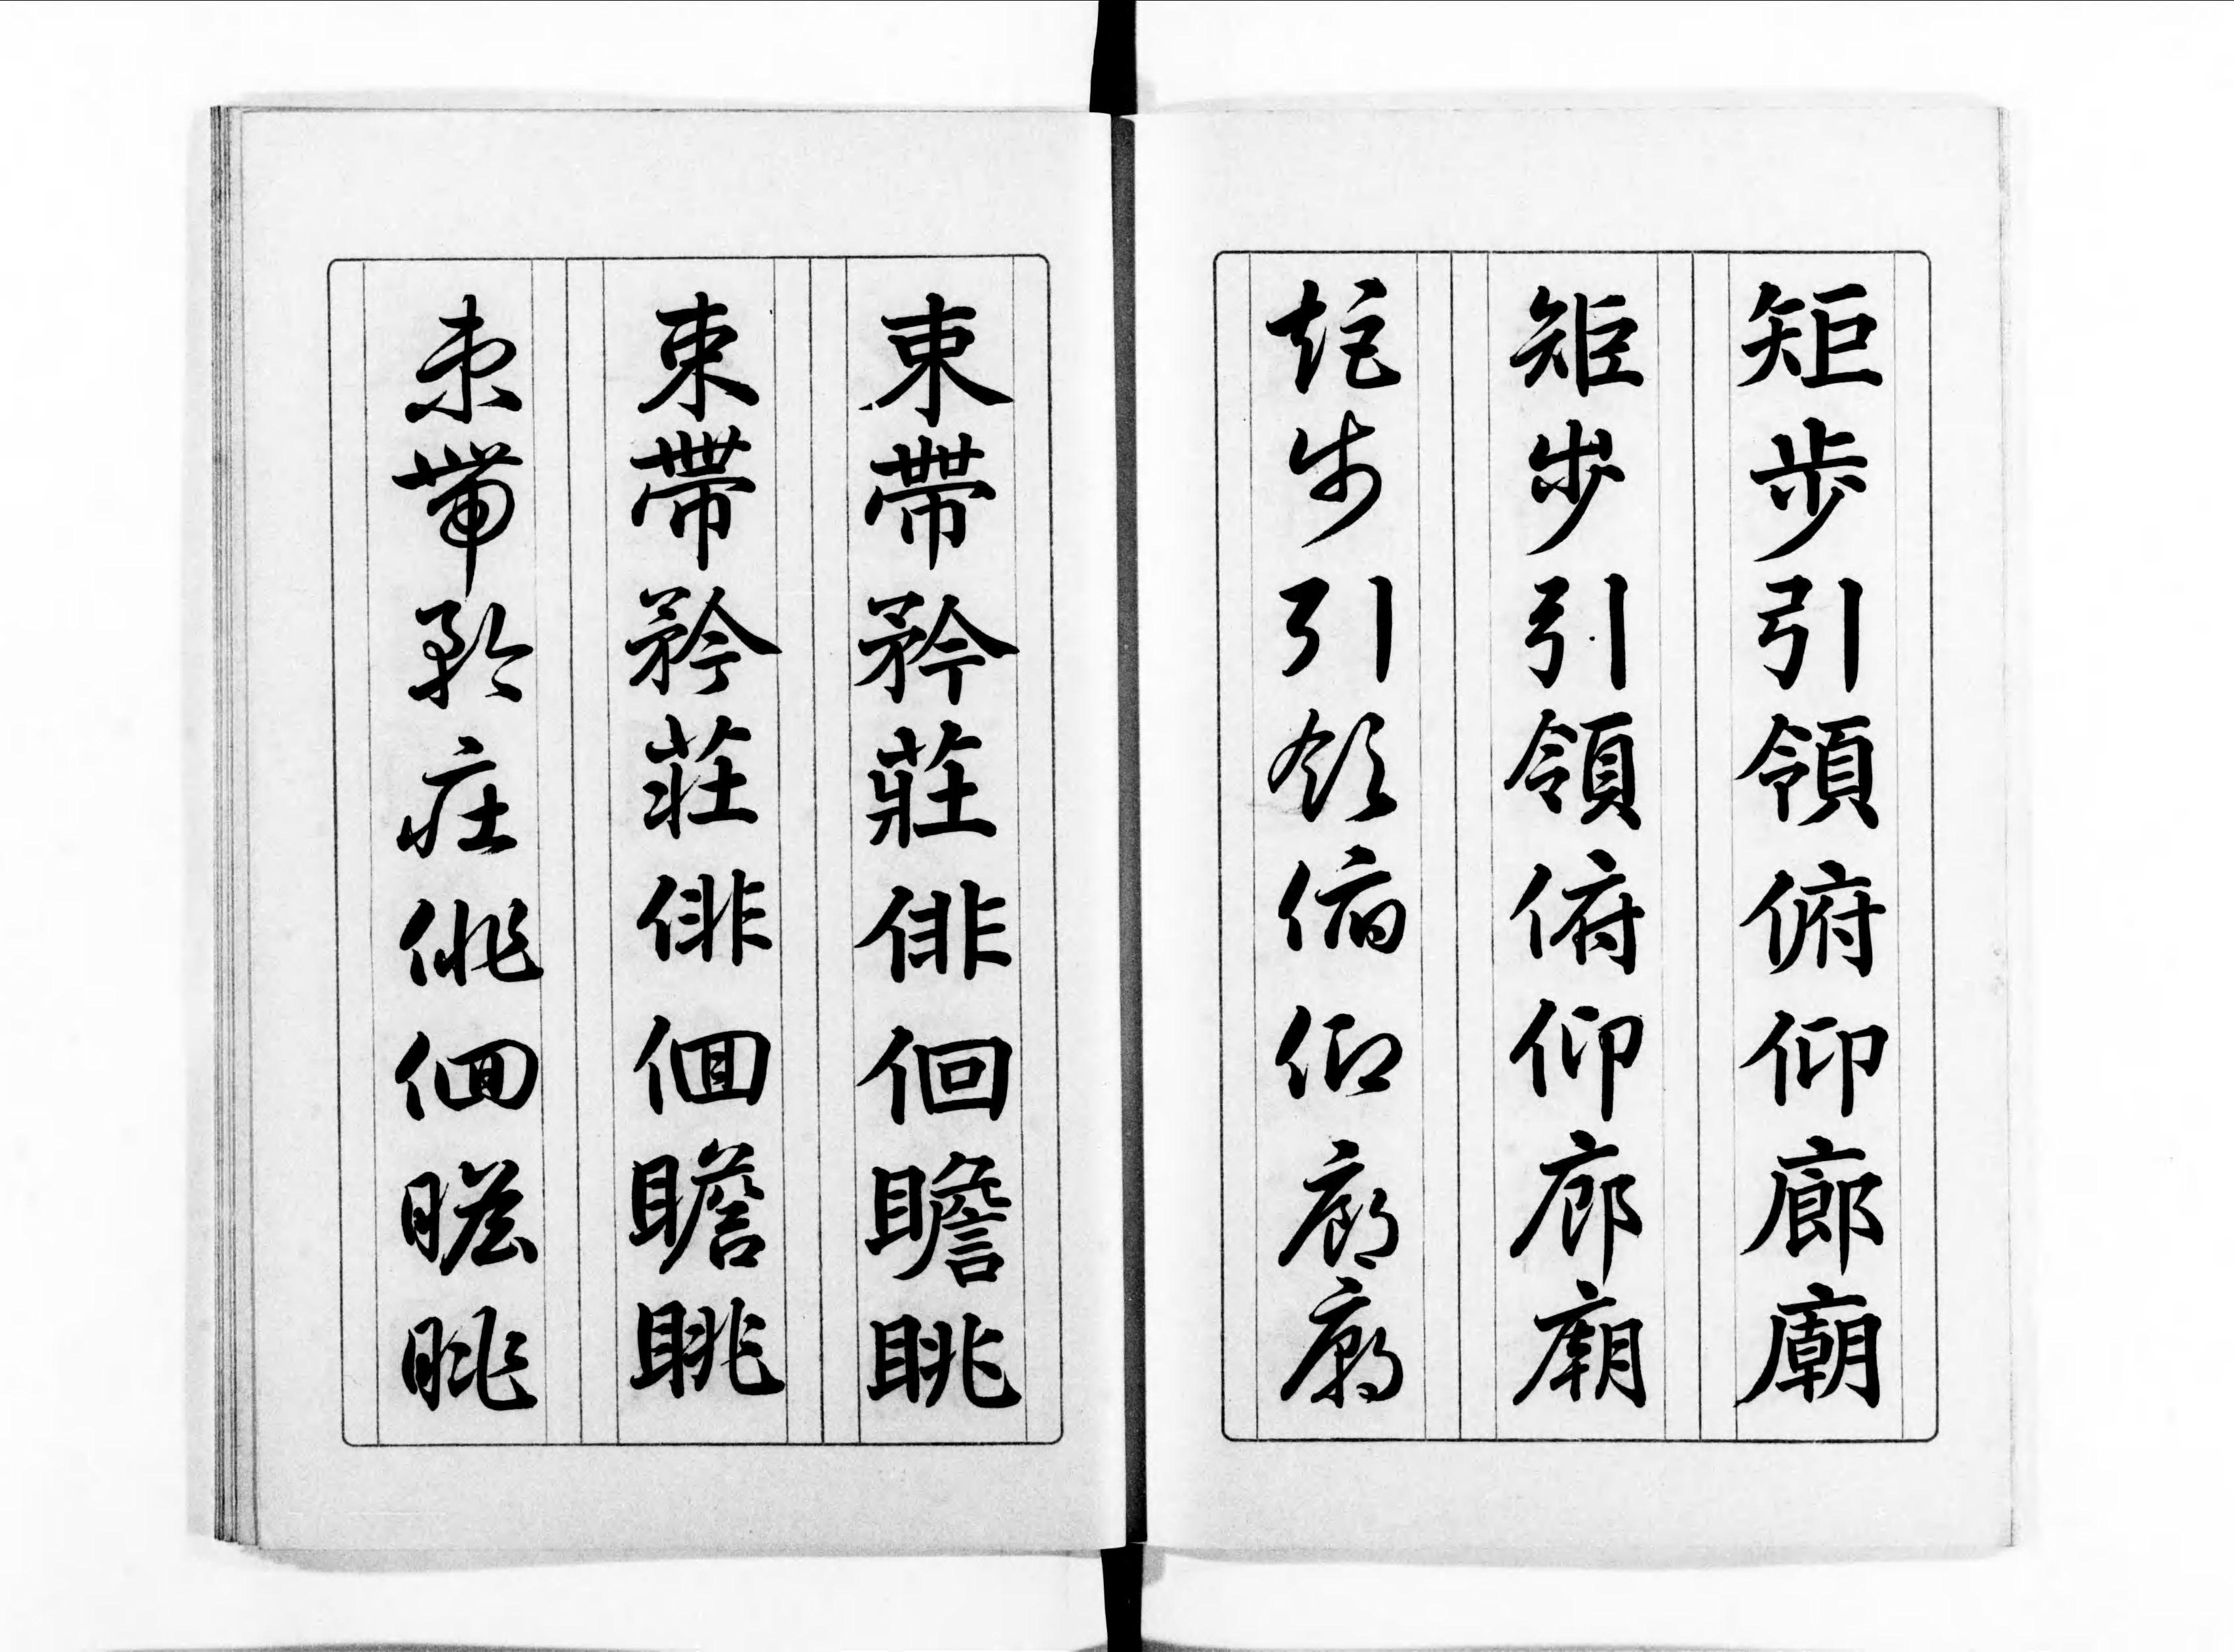 矩步引領俯仰廊廟
矩步引領俯仰廊廟
矩步引領俯仰廊廟
束帶矜莊俳佪瞻眺
束帶矜莊俳佪瞻眺
束帶矜莊俳佪瞻眺